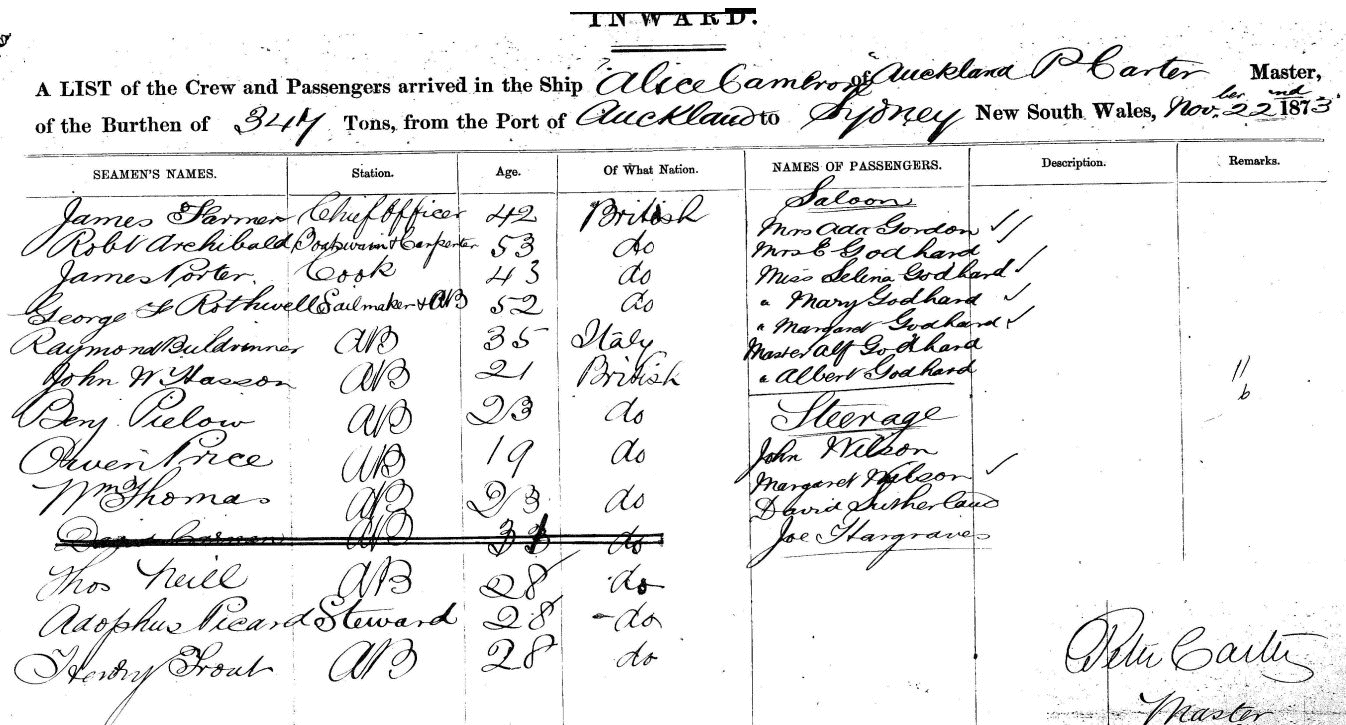 INWARD.
A LIST of the Crew and Passengers arrived in the Ship "Alice Cameron" of Auckland P Carter Master,
of the Burthen of 347 Tons, from the Port of Auckland to Sydney New South Wales, Nov.ber 22nd 1873.
SEAMEN'S NAMES. Station. Age. Of What Nation. NAMES OF PASSENGERS. Description. Remarks.
Saloon
James Farmer Chief Officer 42 British Mrs Ada Gordon ✓✓
Robt Archibald Boatswain & Carpenter 53 do Mrs E Godhard
James Porter. Cook 43 do Miss Selina Godhard ✓
George F Rothwell Sailmaker & AB 52 do " Mary Godhard ✓
" Margaret Godhard ✓
Raymond AB 35 Italy Master Alf Godhard
John W Hasson AB 21 British " Albert Godhard 11
6
Benj. Pielow AB 23 do Steerage
Owen Price AB 19 do John Wilson
Margaret Wilson ✓
Wm Thomas AB 23 do David Sutherland
AB 33 do Joe Hargraves
Thos Neill AB 28 do
Adophus Picard Steward 28 do
Henry Trout AB 28 do
Peter Carter
Master